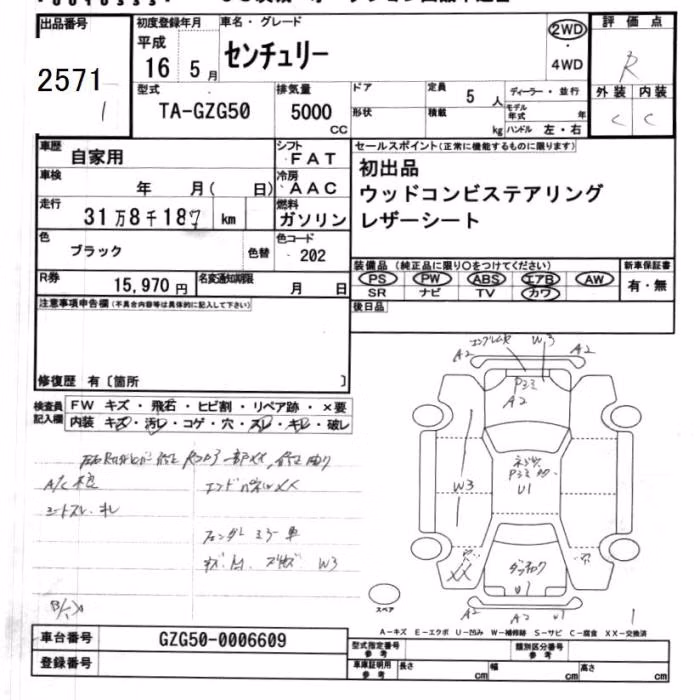 出品番号 初度登録年月 車名・グレード 評価点
2571 平成 16 5月 センチュリー 2WD ・ 4WD R
1
型式 排気量 ドア 定員 5人 ディーラー・並行 外装 内装
TA-GZG50 5000 CC 形状 積載 kg モデル年式 年 ハンドル 左・右 C C
車歴 自家用 シフト FAT セールスポイント(正常に機能するものに限ります)
車検 年 月( 日) 冷房 AAC 初出品
ウッドコンビステアリング
走行 31万8千187 km 燃料 ガソリン レザーシート
色 ブラック 色替 色コード 202
装備品 (純正品に限り○をつけてください) 新車保証書
R券 15,970円 名変通知期限 月 日 PS PW ABS エアB AW 有・無
SR ナビ TV カワ
注意事項申告欄(不具合内容等は具体的に記入して下さい) 後日品
修復歴 有〔箇所 〕
検査員記入欄 FW キズ・飛石・ヒビ割・リペア跡・×要
内装 キズ・汚レ・コゲ・穴・スレ・キレ・破レ
W3
A2 A2
A2
W3 U1
XX
U1
A2 A2 U1
W3
スペア
1
A−キズ E−エクボ U−凹み W−補修跡 S−サビ C−腐食 XX−交換済
車台番号 GZG50-0006609 型式指定番号 参考 類別区分番号 参考
登録番号 車庫証明用 参考 長さ cm 幅 cm 高さ cm